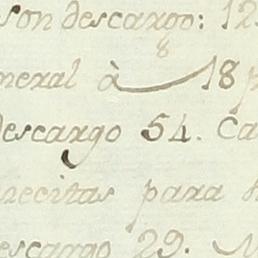 son descargo: 12
neral à 18
8
descargo 54. Ca
necitas para
descargo 29.